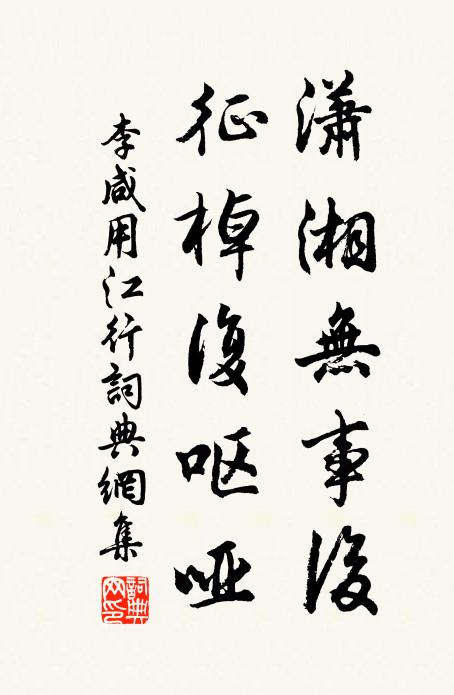 瀟湘無事後
征棹復呕哑
李咸用江行詞典網集
詞典网印